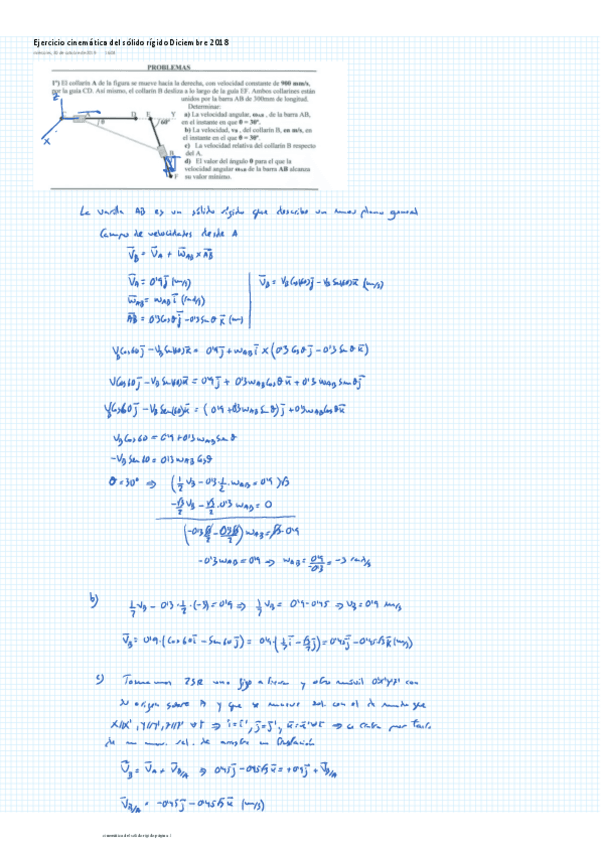 Ejercicio cinemática del sólido rígido Diciembre 2018
PROBLEMAS
1º) El collarín A de la figura se mueve hacia la derecha, con velocidad constante de 900 mm/s,
por la guía CD. Así mismo, el collarín B desliza a lo largo de la guía EF. Ambos collarines están
unidos por la barra AB de 300mm de longitud.
Determinar:
a) La velocidad angular, ωAB, de la barra AB,
en el instante en que θ = 30º.
b) La velocidad, vB, del collarín B, en m/s, en
el instante en el que θ = 30º.
c) La velocidad relativa del collarín B respecto
del A.
d) El valor del ángulo θ para el que la
velocidad angular ωAB de la barra AB alcanza
su valor mínimo.
Z
X
A
θ
D
E
Y
60º
B
F
La varilla AB es un sólido rígido que describe un mov. plano general
Campo de velocidades desde A
V̄B = V̄A + W̄AB × ĀB
V̄A = 0'9 j̄ (m/s)
V̄B = VB Cos(60) j̄ - VB Sen(60) k̄ (m/s)
W̄AB = WAB ī (rad/s)
ĀB = 0'3 Cosθ j̄ - 0'3 Senθ k̄ (m)
VB Cos60 j̄ - VB Sen(60) k̄ = 0'9 j̄ + WAB ī × (0'3 Cosθ j̄ - 0'3 Senθ k̄)
VB Cos60 j̄ - VB Sen(60) k̄ = 0'9 j̄ + 0'3 WAB Cosθ k̄ + 0'3 WAB Senθ j̄
VB Cos60 j̄ - VB Sen(60) k̄ = (0'9 + 0'3 WAB Senθ) j̄ + 0'3 WAB Cosθ k̄
VB Cos60 = 0'9 + 0'3 WAB Senθ
-VB Sen60 = 0'3 WAB Cosθ
θ = 30º ⇒ (½ VB - 0'3 ½ · WAB = 0'9) √3
-√3/2 VB - √3/2 · 0'3 WAB = 0
(-0'3 √3/2 - 0'3 √3/2) WAB = √3 · 0'9
-0'3 WAB = 0'9 ⇒ WAB = 0'9/-0'3 = -3 rad/s
b) ½ VB - 0'3 · ½ · (-3) = 0'9 ⇒ ½ VB = 0'9 - 0'45 ⇒ VB = 0'9 m/s
V̄B = 0'9 · (Cos60 ī - Sen60 j̄) = 0'9 (½ ī - √3/2 j̄) = 0'45 j̄ - 0'45√3 k̄ (m/s)
c) Tomamos 2 SR uno fijo a tierra y otro móvil O'X'Y'Z' con
su origen sobre A y que se mueve sol. con el de modo que
X//X', Y//Y', Z//Z' ∀t ⇒ ī = ī', j̄ = j̄', k̄ = k̄' ∀t ⇒ se trata por tanto
de un mov. rel. de arrastre en traslación
V̄B = V̄A + V̄B/A ⇒ 0'45 j̄ - 0'45√3 k̄ = +0'9 j̄ + V̄B/A
V̄B/A = -0'45 j̄ - 0'45√3 k̄ (m/s)
cinemática del sólido rígido página 1